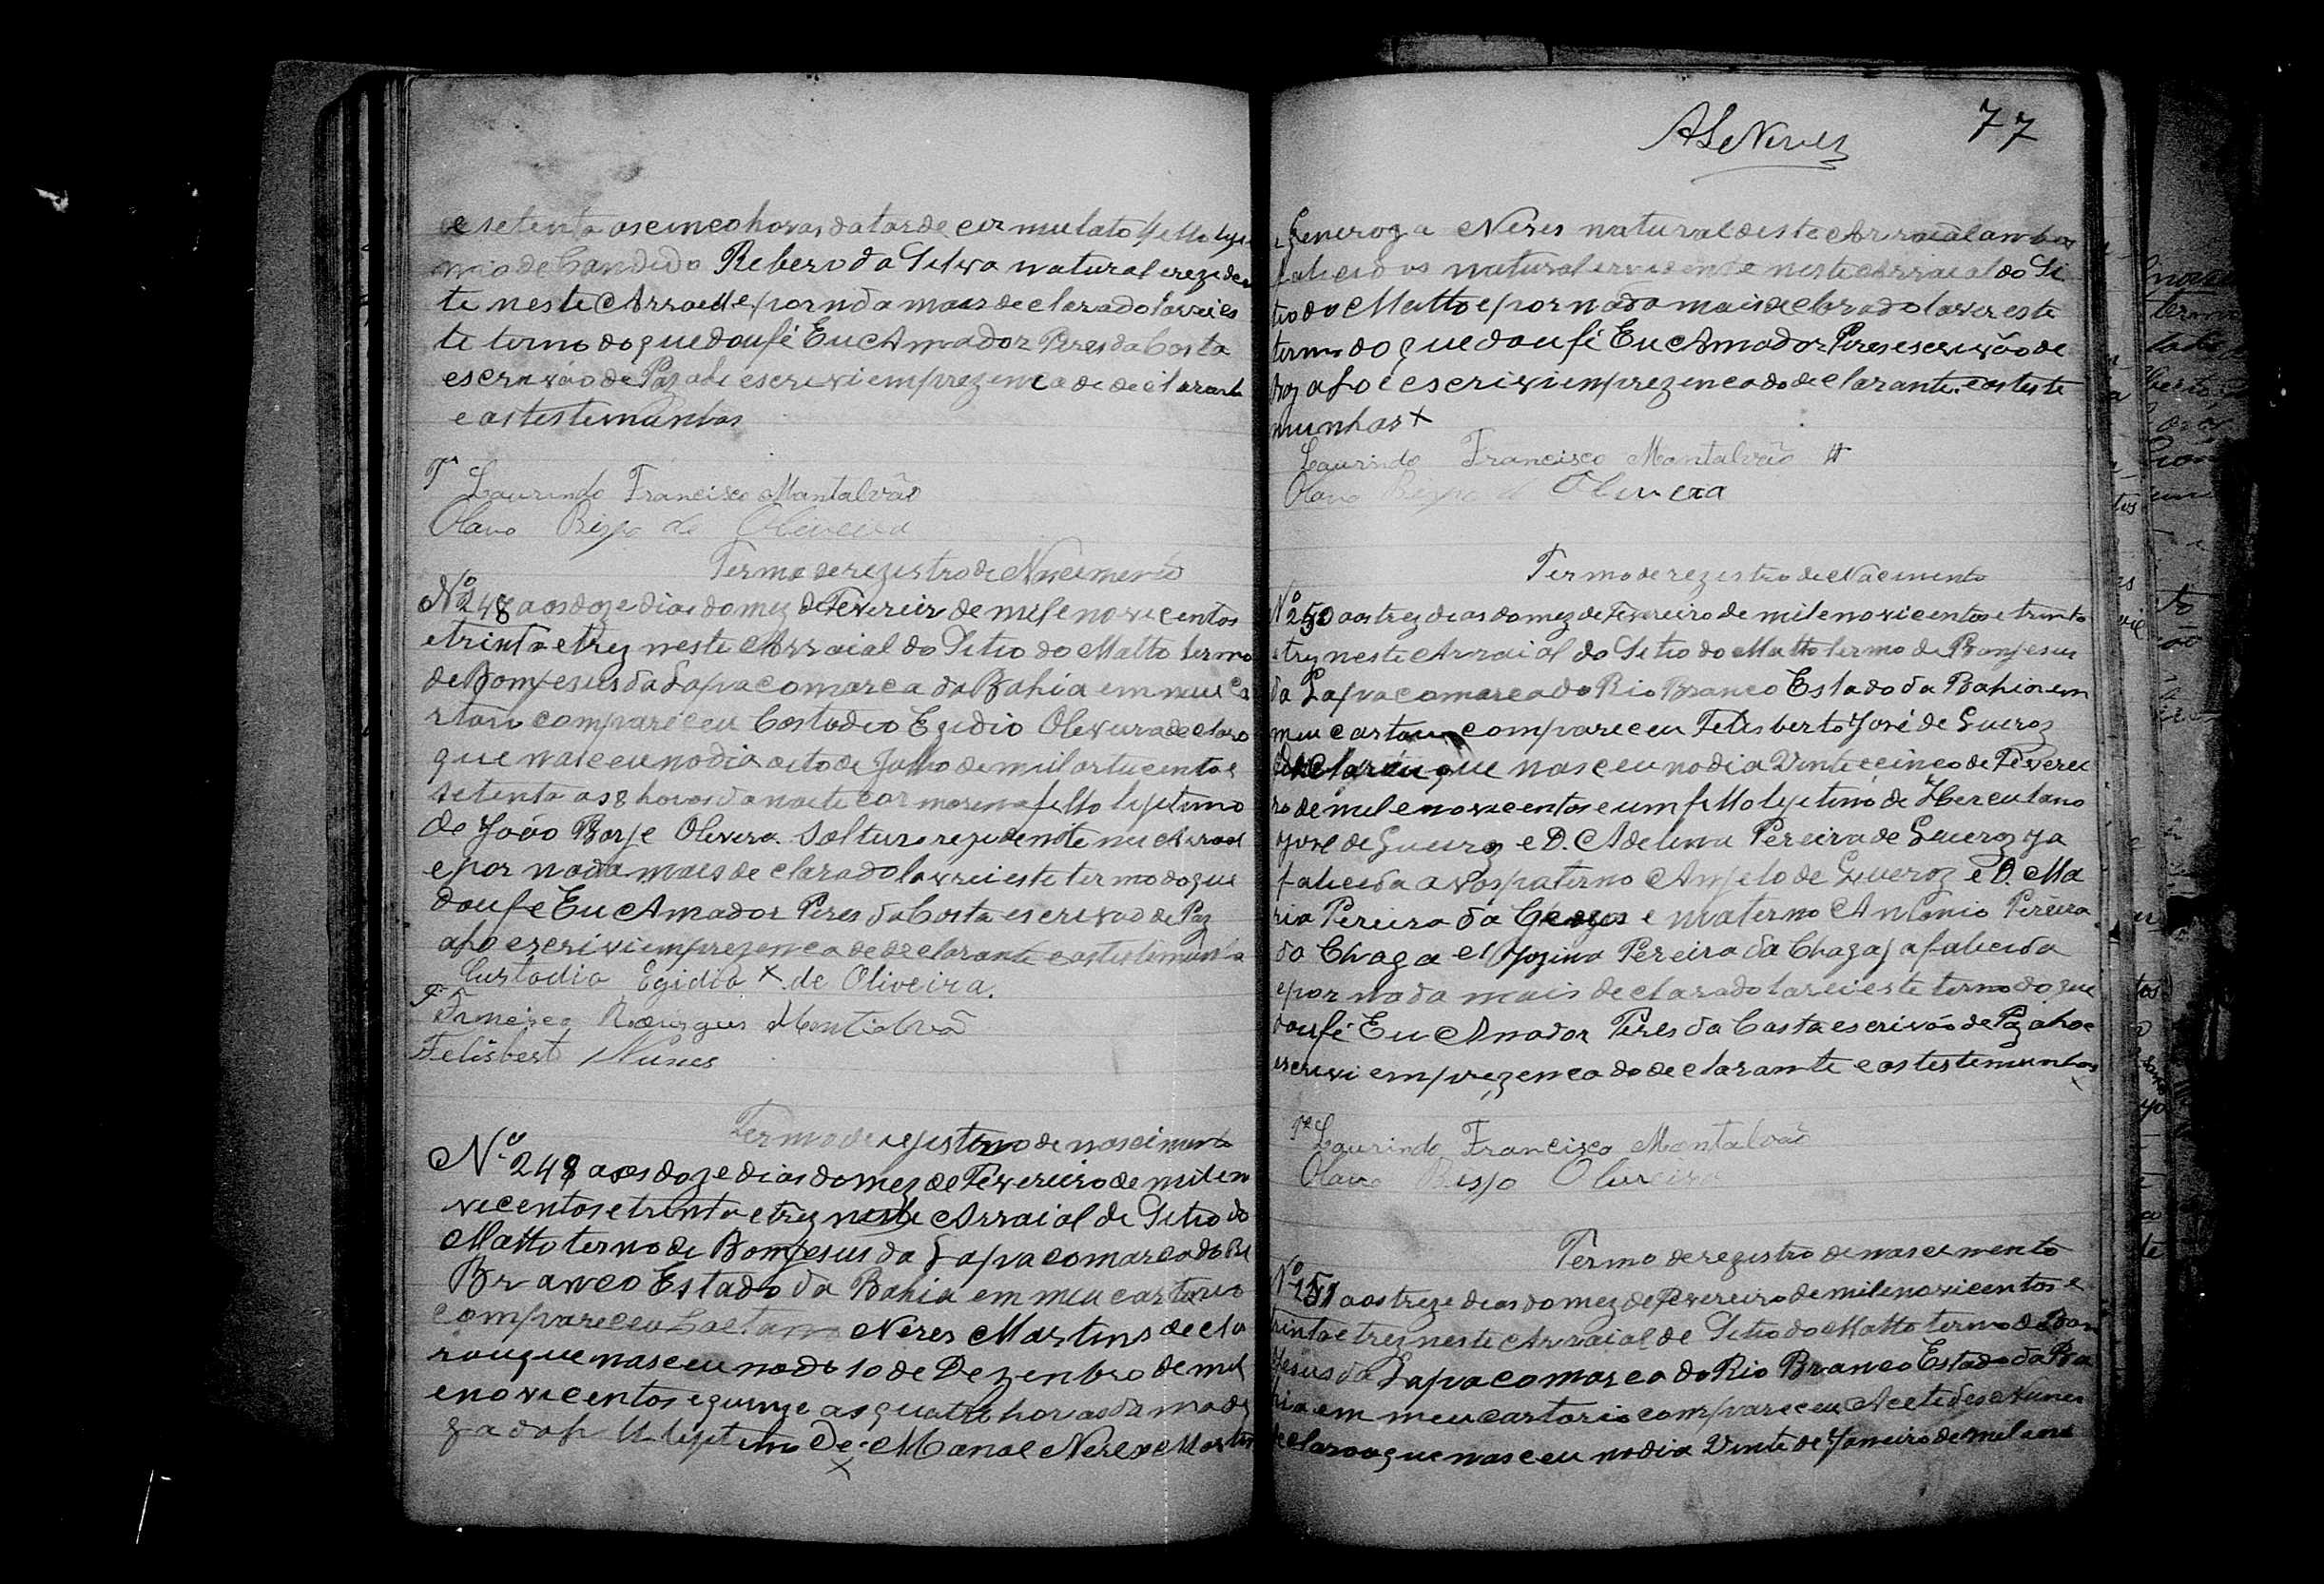 e setenta as cinco horas da tarde cor mulato filho lyti
mio de Candido Rebero da Silva natural erezide
te neste Arraial e por nda mais declarado lavrei es
te termo do que dou fé Eu Amador Peres da Costa
escrivão de Paz escrivi em prezenca de declarante
e as testemunhas
Laurindo Francisco Montalvão
Olavo Bispo de Oliveira
Termo de rezistro de Nascimento
Nº 248 aos doze dias do mez de Fevereiro de mil e novicentos
e trinta e trez neste Arraial do Sitio do Matto termo
de Bom Jesus da Lapa comarca da Bahia em meu ca
rtorio compareceu Costodio Egidio Olivura declaro
que nasceu no dia oito de Julho de mil oitucentos e
setenta as 8 horas da noite cor morena filho lijitimo
de João Borje Olivera. Solturo rezidente neu Arraial
e por nada mais declarado lavrei este termo do que
dou fé Eu Amador Peres da Costa escrivão de Paz
escrivi em prezenca de declarante e as testimunha
Custodio Egidio x de Oliveira.
Francisco Montalvão
Felisbert Nunes
Termo de rejistro de nascimento
Nº 248 aos doze dias do mez de Fevereiro de mil eno
vicentos e trinta e trez neste Arraial de Sitio do
Matto termo de Bom Jesus da Lapa comarca do Ri
Branco Estado da Bahia em meu cartorio
compareceu Caetano Neres Martins decla
rou que nasceu no di 10 de Dezenbro de mil
e novicentos e quinze as quatro horas da madr
gada filh lijitimo de Manoe Neres Martin
x
ASeNeves 77
e Generoza Neres natural deste Arraial anbos
falicidos natural e rezidente neste Arraial do Si
tio do Matto e por nada mais declarado laver este
termo do que dou fé Eu Amador Peres escrivão de
Paz escrivi em prezenca do declarante. e as teste
munhas x
Laurindo Francisco Montalvão
Olavo Bispo d Oliveira
Termo de rezistro de Nacimento
Nº 250 aos trez dias do mez de Fevereiro de mil e novicentos e trinta
e trez neste Arraial do Sitio do Matto termo de Bom jesus
da Lapa comarca do Rio Branco Estado da Bahia em
meu cartorio compareceu Felisberto José de Queroz
declarou que nasceu no dia Vinte e cinco de Feverei
ro de mil e novicentos e um filho lijitimo de Herculano
José de Queiroz e D. Adelina Pereira de Queroz ja
falicida avós paterno Anjelo de Queroz e D. Ma
ria Pereira da Chagas e materno Antonio Pereira
da Chaga e Jozina Pereira da Chagas falicida
e por nada mais declarado larei este termo do que
dou fé Eu Amador Peres da Costa escrivão de Paz
escrivi em prezenca do declarante e as testemunhas
Laurindo Francisco Montalvão
Olavo Bispo Oliveira
Termo de rezistro de nascimento
Nº 251 aos treze dias do mez de Fevereiro de mil e novicentos e
trinta e trez neste Arraial de Sitio do Matto termo de Bom
Jesus da Lapa comarca do Rio Branco Estado da Ba
hia em meu cartorio compareceu Acetides Nunes
declarou que nasceu no dia Vinte de Janeiro de mil